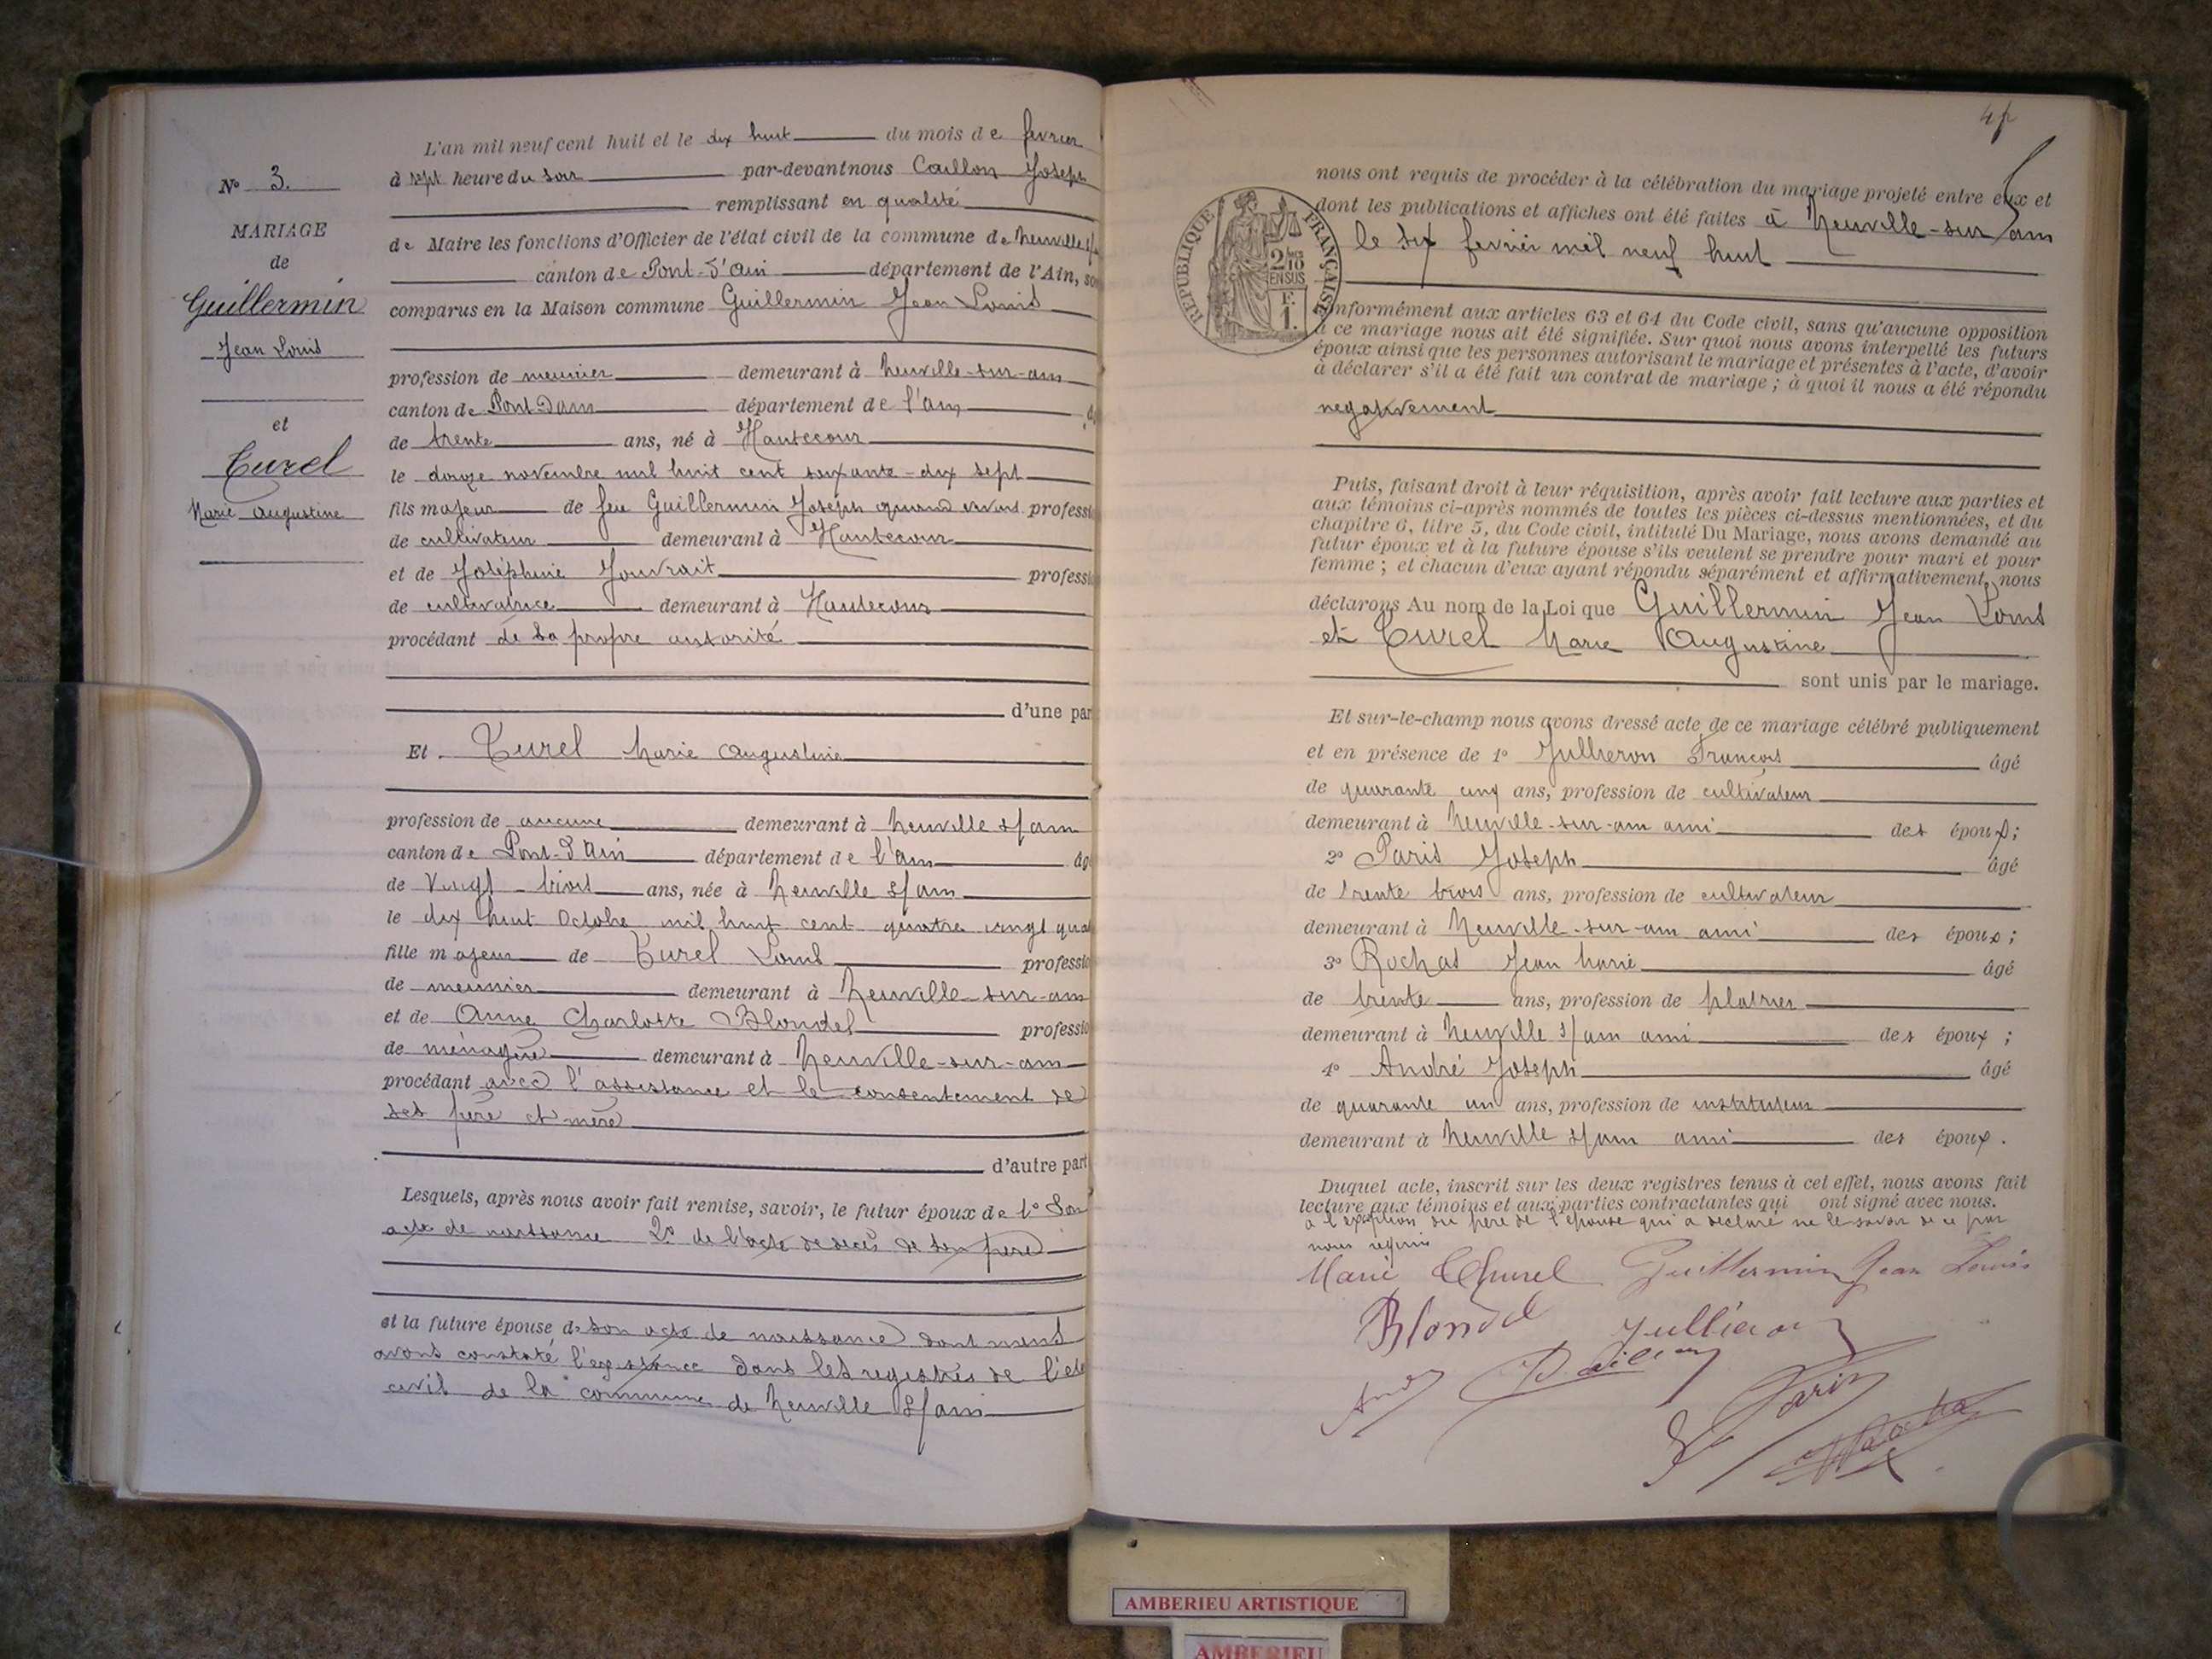 L'an mil neuf cent huit et le dix huit du mois de fevrier
N° 3. à sept heure du soir par-devant nous Caillon Joseph
remplissant en qualité
MARIAGE
de Maire les fonctions d'Officier de l'état civil de la commune de Neuville s/a
de
canton de Pont-d'Ain département de l'Ain, so
Guillermin
comparus en la Maison commune Guillermin Jean Louis
Jean Louis
profession de meunier demeurant à Neuville-sur-ain
canton de Pont Dain département de l'ain
et
de trente ans, né à Hautecour
Turel
le douze novembre mil huit cent soixante-dix sept
Marie Augustine
fils majeur de feu Guillermin Joseph quand vivait professi
de cultivateur demeurant à Hautecour
et de Joséphine Jouvrait professi
de cultivatrice demeurant à Hautecour
procédant de sa propre autorité
d'une par
Et Turel Marie Augustine
profession de aucune demeurant à Neuville s/ain
canton de Pont-d'Ain département de l'ain âg
de Vingt-trois ans, née à Neuville s/ain
le dix huit Octobre mil huit cent quatre vingt qua
fille majeur de Turel Louis professio
de meunier demeurant à Neuville-sur-ain
et de Anne Charlotte Blondel professio
de ménagère demeurant à Neuville-sur-ain
procédant avec l'assistance et le consentement de
ses père et mère
d'autre part
Lesquels, après nous avoir fait remise, savoir, le futur époux de 1° Son
acte de naissance 2° de l'acte de décès de son père
et la future épouse de son acte de naissance dont nous
avons constaté l'existence dans les registres de l'éta
civil de la commune de Neuville s/ain
nous ont requis de procéder à la célébration du mariage projeté entre eux et
dont les publications et affiches ont été faites à Neuville-sur-ain
le six fevrier mil neuf huit
REPUBLIQUE FRANÇAISE
2/10
EN SUS
F.
1.
conformément aux articles 63 et 64 du Code civil, sans qu'aucune opposition
à ce mariage nous ait été signifiée. Sur quoi nous avons interpellé les futurs
époux ainsi que les personnes autorisant le mariage et présentes à l'acte, d'avoir
à déclarer s'il a été fait un contrat de mariage ; à quoi il nous a été répondu
negativement
Puis, faisant droit à leur réquisition, après avoir fait lecture aux parties et
aux témoins ci-après nommés de toutes les pièces ci-dessus mentionnées, et du
chapitre 6, titre 5, du Code civil, intitulé Du Mariage, nous avons demandé au
futur époux et à la future épouse s'ils veulent se prendre pour mari et pour
femme ; et chacun d'eux ayant répondu séparément et affirmativement, nous
déclarons Au nom de la Loi que Guillermin Jean Louis
et Turel Marie Augustine
sont unis par le mariage.
Et sur-le-champ nous avons dressé acte de ce mariage célébré publiquement
et en présence de 1° Jullieron François âgé
de quarante cinq ans, profession de cultivateur
demeurant à Neuville-sur-ain ami des époux;
2° Paris Joseph âgé
de trente trois ans, profession de cultivateur
demeurant à Neuville-sur-ain ami des époux;
3° Rochas Jean Marie âgé
de trente ans, profession de platrier
demeurant à Neuville s/ain ami des époux ;
4° André Joseph âgé
de quarante un ans, profession de instituteur
demeurant à Neuville s/ain ami des époux.
Duquel acte, inscrit sur les deux registres tenus à cet effet, nous avons fait
lecture aux témoins et aux parties contractantes qui ont signé avec nous.
à l'exception du père de l'épouse qui a déclaré ne le savoir de ce par
nous requis
Marie Thurel Guillermin Jean Louis
Blondel Jullieron
André Caillon Paris
Rochas
AMBERIEU ARTISTIQUE
AMBERIEU